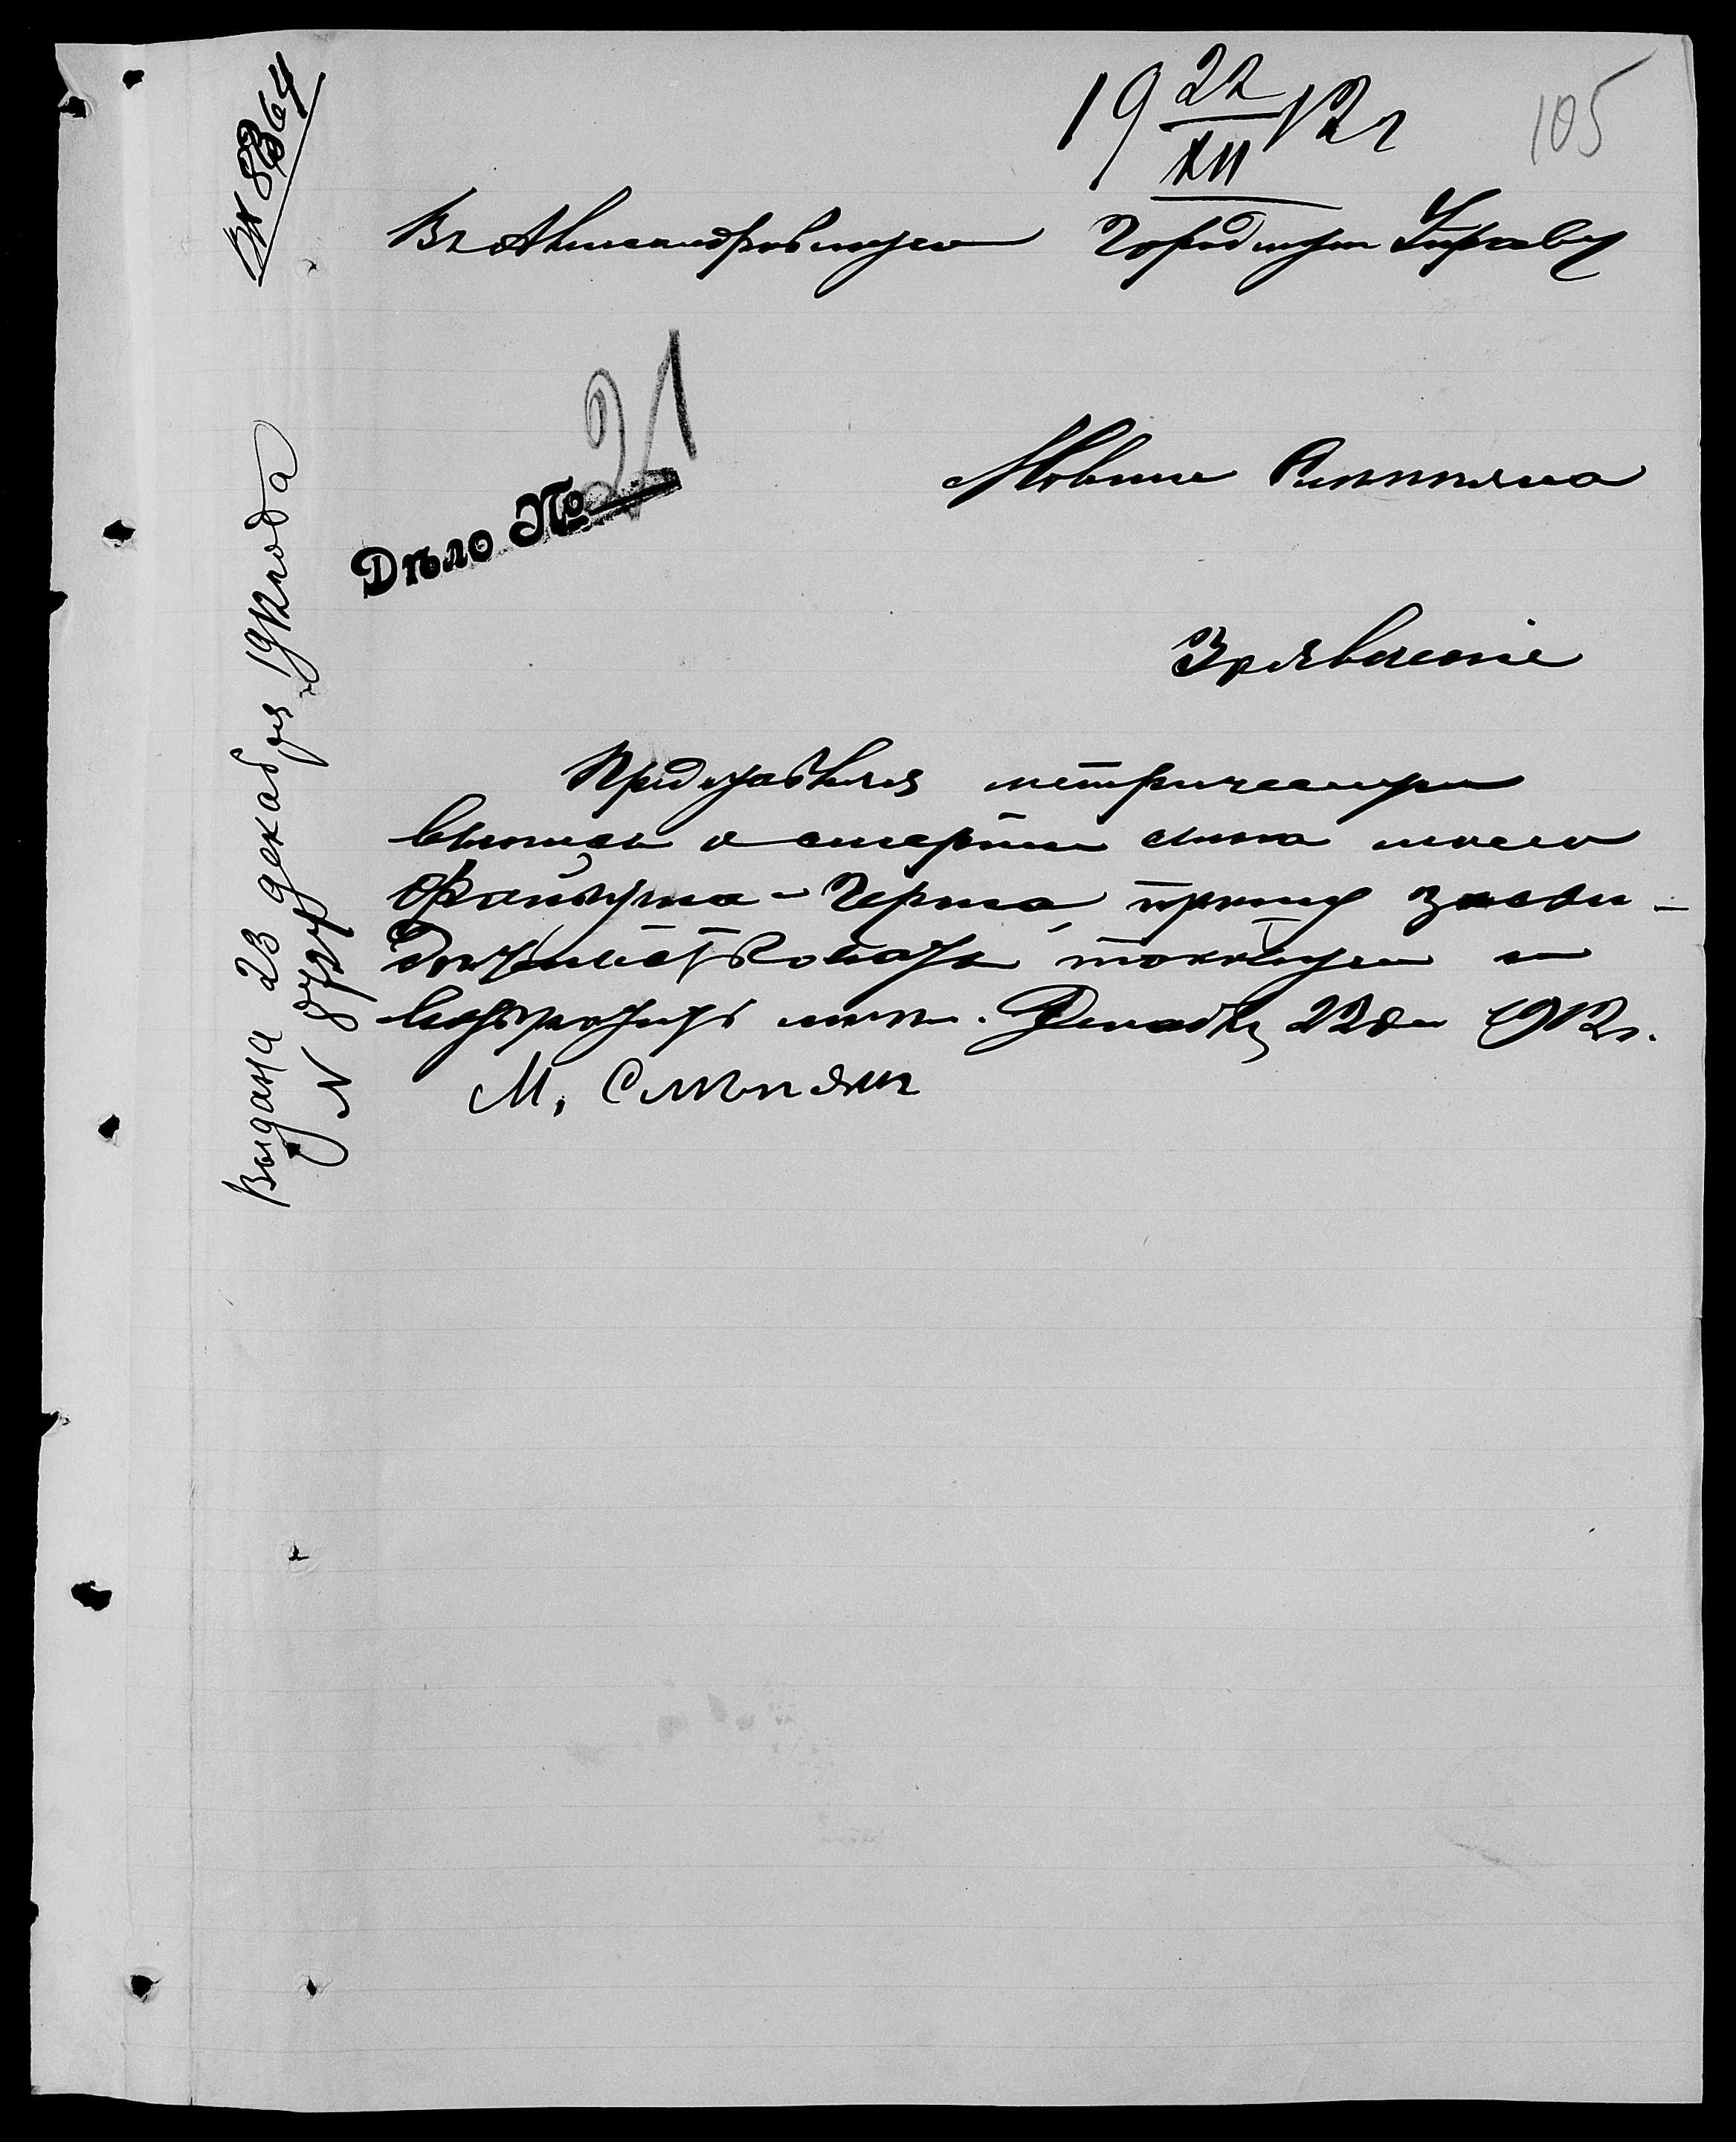 19 22/XII 12 г
105
Въ Александровскую Городскую Управу
Вх 8364
Дѣло № 21
Мовши
Заявленіе
Представляя метрическую
выпись о смерти сына моего
Файвуша-Герша, прошу засви-
дѣтельствовать таковую и
возвратить мнѣ. Декабр 22 дн 1912 г.
М. Слѣпянъ
Выдана 23 декабря 1912 года
N